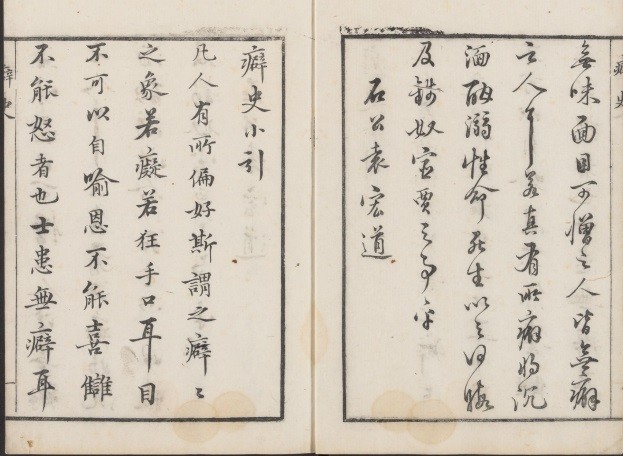 癖史
無味面目可憎之人皆無癖
之人耳若真有所癖將沉
湎酣溺性命死生以之何暇
及錢奴宦賈之事乎
石公袁宏道
癖史小引
凡人有所偏好斯謂之癖〻
之象若癡若狂手口耳目
不可以自喻恩不能喜讎
不能怒者也士患無癖耳
癖史